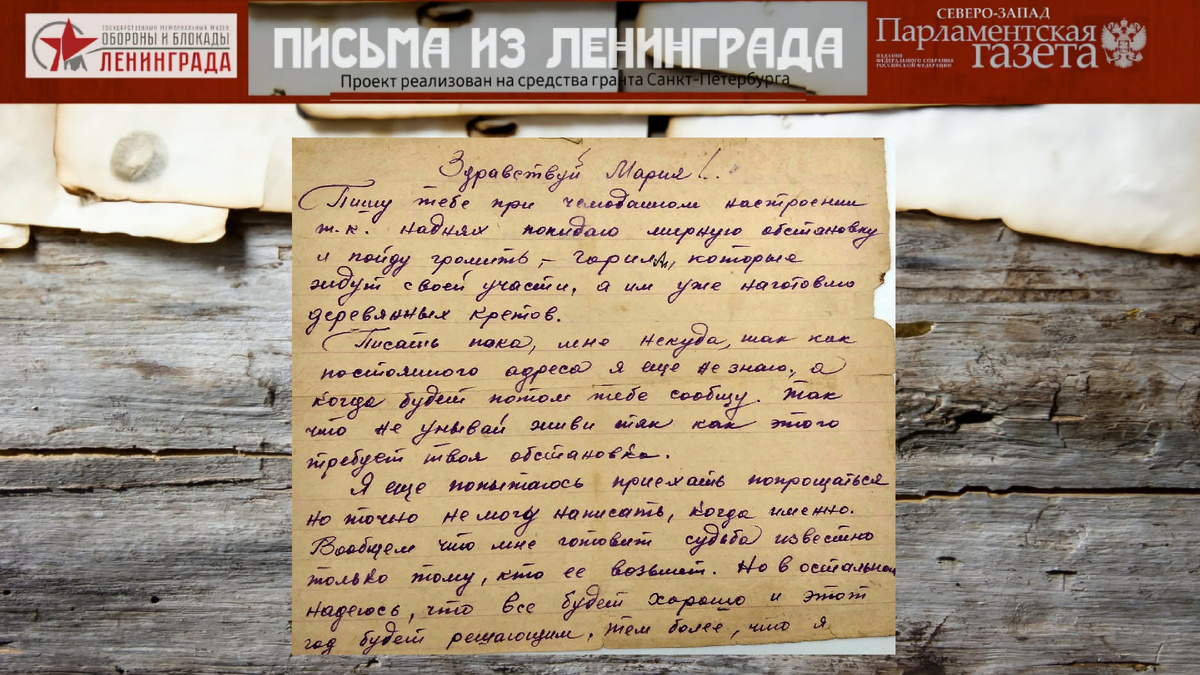 ГОСУДАРСТВЕННЫЙ МЕМОРИАЛЬНЫЙ МУЗЕЙ
ОБОРОНЫ И БЛОКАДЫ
ЛЕНИНГРАДА
ПИСЬМА ИЗ ЛЕНИНГРАДА
Проект реализован на средства гранта Санкт-Петербурга
СЕВЕРО-ЗАПАД
Парламентская
газета
ИЗДАНИЕ
ФЕДЕРАЛЬНОГО СОБРАНИЯ
РОССИЙСКОЙ ФЕДЕРАЦИИ
Здравствуй Мария!..
Пишу тебе при чемоданном настроении
т.к. наднях покидаю мирную обстановку
и пойду громить, – которые
ждут своей участи, а им уже наготовлю
деревянных кретов.
Писать пока, мне некуда, так как
постоянного адреса я еще не знаю, а
когда будет потом тебе сообщу. Так
что не унывай живи так как этого
требует твоя обстановка.
Я еще попытаюсь приехать попрощаться
но точно не могу написать, когда именно.
Вообщем что мне готовит судьба известно
только тому, кто ее возьмет. Но в остальном
надеюсь, что все будет хорошо и этот
год будет решающим, тем более, что я